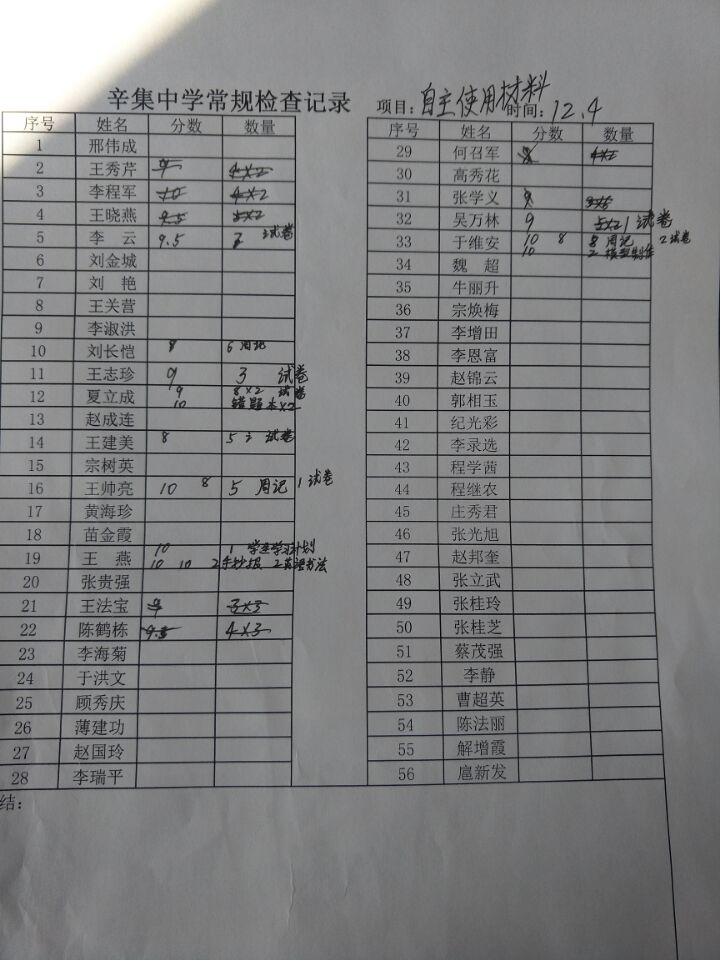 辛集中学常规检查记录 项目：自主使用材料 时间：12.4
序号 姓名 分数 数量
1 邢伟成
2 王秀芹 9 4×2
3 李程军 10 4×2
4 王晓燕 9.5 5×2
5 李 云 9.5 试卷
6 刘金城
7 刘 艳
8 王关营
9 李淑洪
10 刘长恺 8 6 周记
11 王志珍 9 3 试卷
12 夏立成 9 8×2 试卷
10 错题本×2
13 赵成连
14 王建美 8 5 试卷
15 宗树英
16 王帅亮 10 8 5 周记 1试卷
17 黄海珍
18 苗金霞
19 王 燕 10 1 学生学习计划
10 10 2手抄报 2英语书法
20 张贵强
21 王法宝 9 3×3
22 陈鹤栋 9.5 4×3
23 李海菊
24 于洪文
25 顾秀庆
26 薄建功
27 赵国玲
28 李瑞平
结：
序号 姓名 分数 数量
29 何召军 4×2
30 高秀花
31 张学义
32 吴万林 9 1试卷
33 于维安 10 8 8 周记 2试卷
10 2 模型制作
34 魏 超
35 牛丽升
36 宗焕梅
37 李增田
38 李恩富
39 赵锦云
40 郭相玉
41 纪光彩
42 李录选
43 程学茜
44 程继农
45 庄秀君
46 张光旭
47 赵邦奎
48 张立武
49 张桂玲
50 张桂芝
51 蔡茂强
52 李静
53 曹超英
54 陈法丽
55 解增霞
56 扈新发